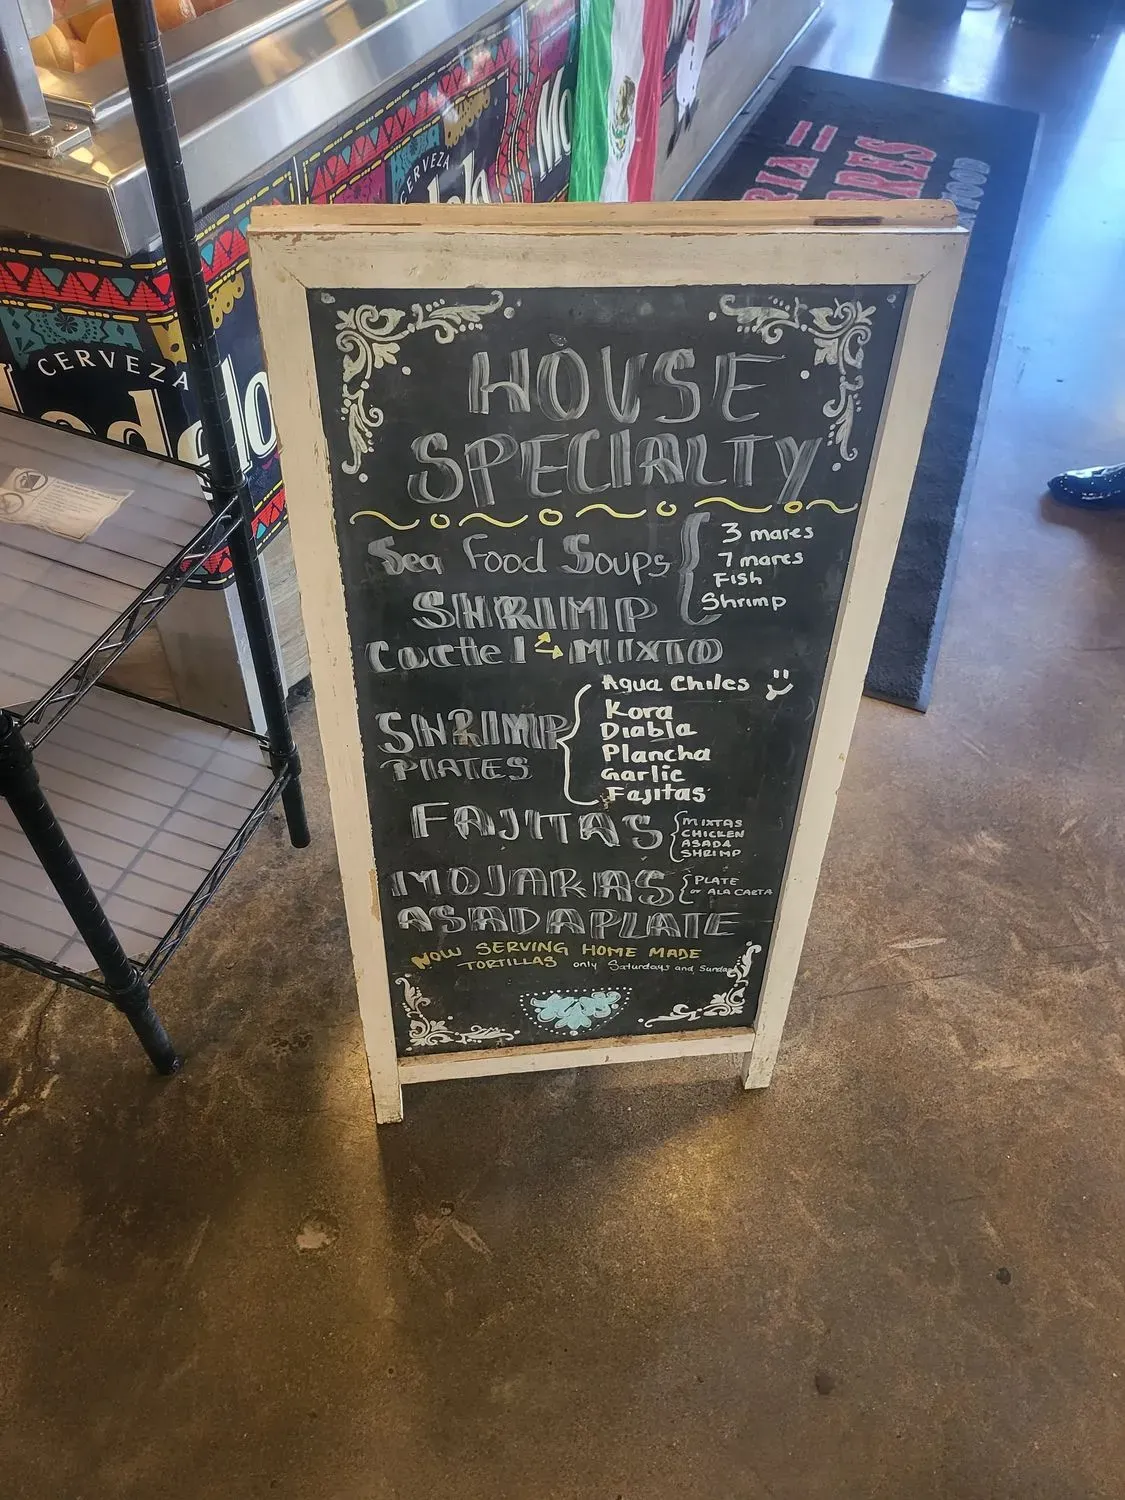 CERVEZA
Mo
CERVEZA
Modelo
RIA
ARES
HOUSE
SPECIALTY
Sea Food Soups
3 mares
7 mares
Fish
Shrimp
SHRIMP
Coctel MIXTO
SHRIMP
PLATES
Agua Chiles
Kora
Diabla
Plancha
Garlic
Fajitas
FAJITAS
MIXTAS
CHICKEN
ASADA
SHRIMP
MOJARAS
PLATE
or ALA CARTA
ASADA PLATE
NOW SERVING HOME MADE
TORTILLAS only Saturdays and Sunday